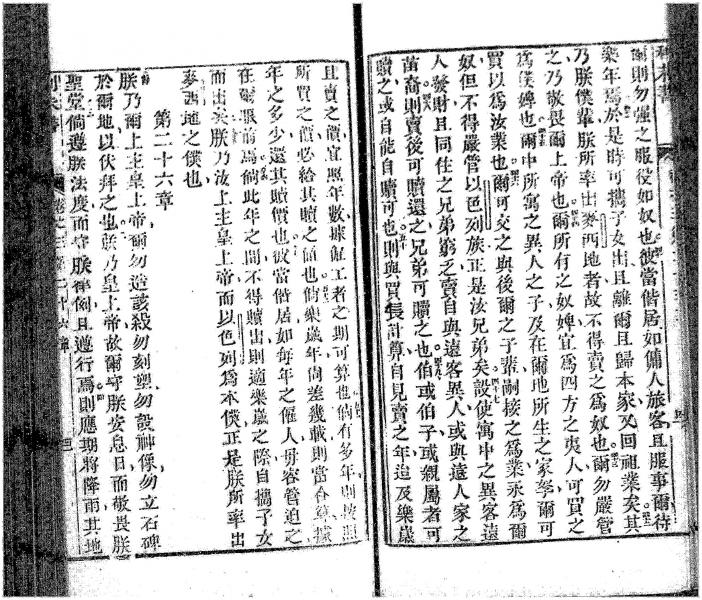 利未書
爾則勿强之服役如奴也彼當偕居如傭人旅客且服事爾待
樂年焉於是時可攜子女出且離爾且歸本家又回祖業矣其
乃朕僕輩朕所率出麥西地者故不得賣之為奴也爾勿嚴管
之乃敬畏爾上帝也爾所有之奴婢宜為四方之夷人可買之
為僕婢也爾中所寓之異人之子及在爾地所生之家孥爾可
買以為汝業也爾可交之與後爾之子輩嗣接之為業永為爾
奴但不得嚴管以色列族正是汝兄弟矣設使寓中之異客遠
人發財且同住之兄弟窮乏賣自與遠客異人或與遠人家之
苗裔則賣後可贖還之兄弟可贖之也伯或伯子或親屬者可
贖之或自能自贖可也則與買長計算自見賣之年迄及樂歲
且賣之價宜照年數據傭工者之期可算也倘有多年則按照
所買之價必給其贖之值也倘樂歲年尚差幾載則當合算據
年之多少還其贖價也彼當偕居如每年之傭人毋容管迫之
在爾眼前焉倘此年之間不得贖出則適樂歲之際自攜子女
而出矣朕乃汝上主皇上帝而以色列為本僕正是朕所率出
麥西地之僕也
第二十六章
朕乃爾上主皇上帝爾勿造該殺勿刻塑勿設神像勿立石碑
於爾地以伏拜之也朕乃皇上帝故爾守朕安息日而敬畏朕
聖堂倘遵朕法度而守朕律例且遵行焉則應期將降雨其地